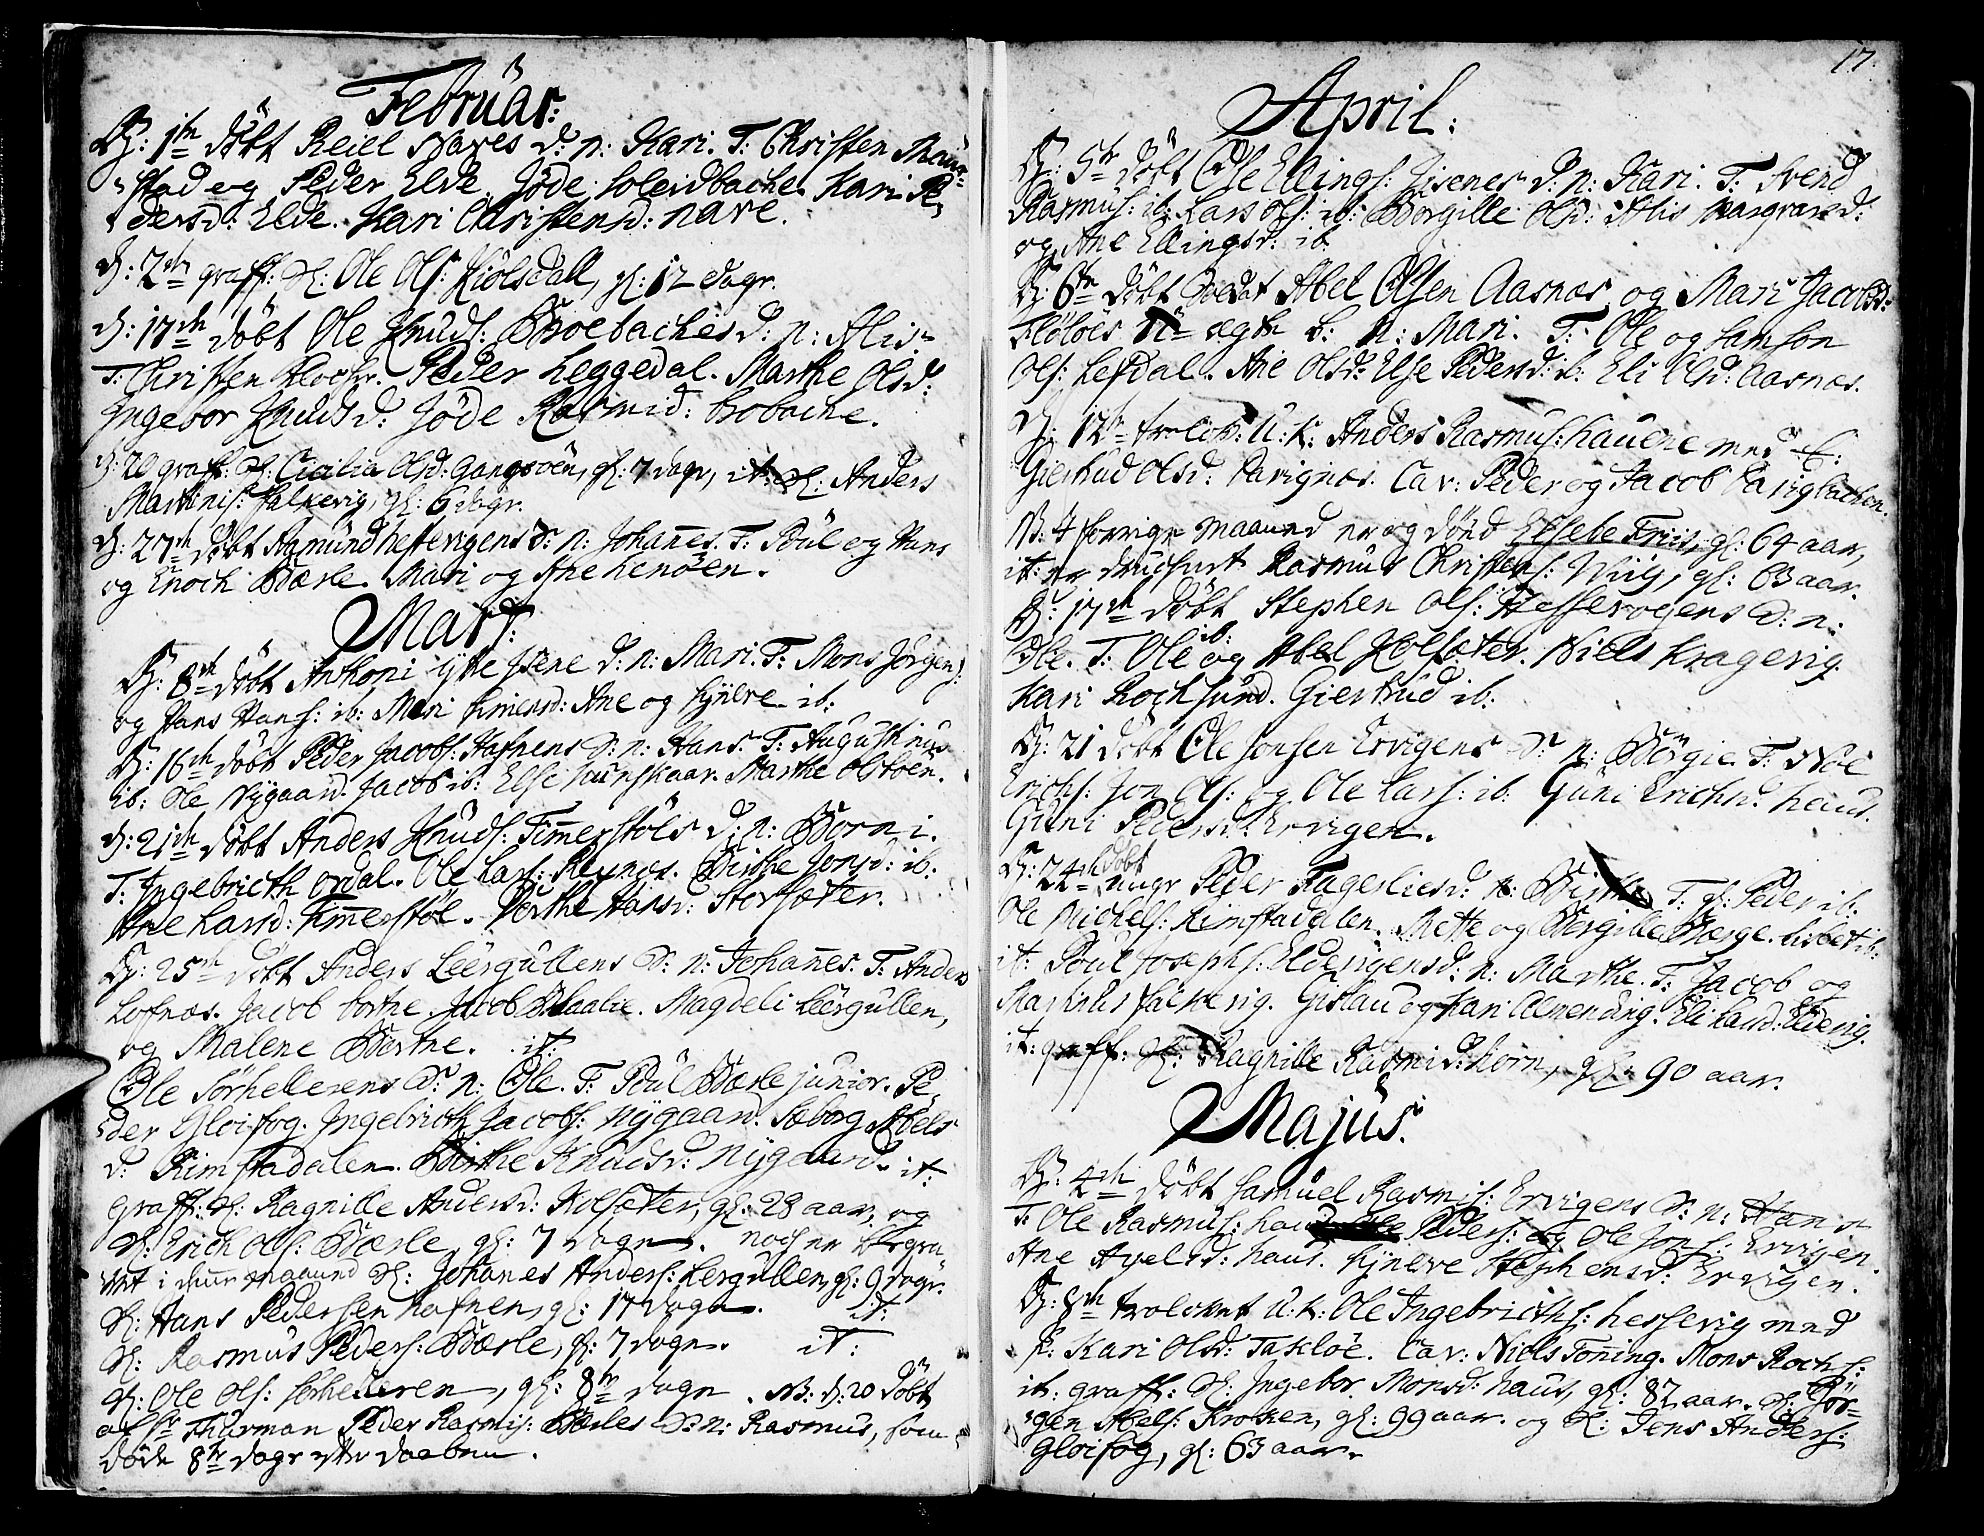 Februar:
D: 1te döbt Reiel Naves d: n: Kari. T: Christen Maur-
stad og Peder Elde. Jöde Leidbache. Kari Pe-
dersd: Elde. Kari Christensd: Nave.
D: 2de graff: S: Ole Ols: Hiölsdall, gl: 12 dage.
D: 17de döbt Ole Knuds: Broebaches d: n: Alis.
T: Christen Klocher. Peder Leggedal. Marthe Olsd:
Ingebor Knudsd: Jöde Rasmid: brobache.
D: 20 graff: S: Cicilia Olsd: Gangsöen, gl: 7 dage, it: S: Anders
Martinis: Salpevig, gl: 6 dage.
D: 27de döbt Asmünd Hessevigens d: n: Johanes. T: Poül og Hans
og Enoch Bærle. Mari og Ane Henöen.
Mart:
D: 8de döbt Anthoni Isene d: n: Mari. T: Mons Jörgens:
og Hans Hans: ib: Mari Simensd: Ane og Synneve ib:
D: 16de döbt Peder Jacobs: Hafnens S: n: Hans. T: Augustinus
ib: Ole Nygaard. Jacob ib: Else Marthe Olsdöen.
D: 21de döbt Anders Knuds: Timerstöls d: n: Borni.
T: Ingebricth Ordal. Ole Lars: Reynes. Birthe Jonsd: ib:
Ane Larsd: Timerstöl. Berthe Hansd: Storsæter.
D: 25de döbt Anders Leergullens S: n: Johanes. T: Anders
Lofnæs. Jacob Borthe. Jacob Blaalie. Magdeli Leergullen,
og Malene Borthe. it:
Ole Sörhellerens S: n: Ole. T: Poül Bærle junior. Pe-
der Gloifog. Ingebricth Jacobs: Nygaard. Seborg Abels
d: Rimstadalen. Birthe Knudsd: Nygaard. it:
graff: S: Ragnille Andersd: Holsæter, gl: 28 aar, og
S: Erich Ols: Bærle gl: 7 dage. noch er begra-
vet i denne Maaned S: Johanes Anders: Lergullen, gl: 9 dage.
S: Hans Pedersen Hafnen, gl: 17 dage. it:
S: Rasmus Peders: Bærle, gl: 7 dage. it:
S: Ole Ols: Sörhelleren, gl: 8te dage. NB: D: 20 döbt
af Hr Thurman Peder Rasmis: Bærles S: n: Rasmus, som
döde 8te dage efter daaben.
17
April:
D: 5te döbt Ole Ellings: Isenes d: n: Kari. T: Svend
Rasmus: ib: Lars Ols: ib: Borgille Olsd: Alis
og Ane Ellingsd: ib.
D: 6te döbt Soldat Abel Olsen Aarnæs og Mari Jacobsd:
Flölöes uægte b: n: Mari. T: Ole og Samson
Ols: Lefdal. Ane Olsd: Else Pedersd: ib: Eli Olsd: Aarnæs.
D: 12te trolov: U: K: Anders Rasmus: Hauene med P:
Giertrud Olsd: Parignæs. Cav: Peder og Jacob Parigbachen.
NB: I forrige Maaned er og död Elsebe Friis, gl: 64 aar,
it: Rasmus Christens: Wiig, gl: 63 aar.
D: 17de döbt Stephen Ols: Hessevogens S: n:
Ole. T: Ole ib: og Abel Holsæter. Niels Kragevig.
Kari Rochsund. Giertrud ib:
D: 21 döbt Ole Jonsen Ervigens S: n: Börgie. T: Noe
Erichs: Jon Ols: og Ole Lars: ib: Guni Erichsd: Haus.
Guni Pedersd: Ervigen.
D: 24de döbt unge Peder Fagerlies d: n: Birthe. T: gl: Peder ib:
Ole Michels: Rimstadalen. Mette og Borgille Bærge. Lisbet ib:
it: Poül Josephs: Eldevigens d: n: Marthe. T: Jacob og
Martinus Salpevig. Gislau og Kari Almending. Eli Larsd: Eldevig.
it: graff: S: Ragnille Rasmisd: Horn, gl: 90 aar.
Majus.
D: 4de döbt Samüel Rasmis: Ervigens S: n: Hans
T: Ole Rasmus: Haus Peders: og Ole Jons: Ervigen.
Ane Axelsd: Haus. Synneve Stephensd: Ervigen.
D: 8de trolovet U: K: Ole Ingebricths: Hessevig med
P: Kari Olsd: Taskloe. Cav: Niels Toning. Mons Rochs:
it: graff: S: Ingebor Monsd: Haus, gl: 87 aar. S: Jör-
gen Abels: Kroken, gl: 99 aar. og S: Jens Anders:
Gloifog, gl: 63 aar.